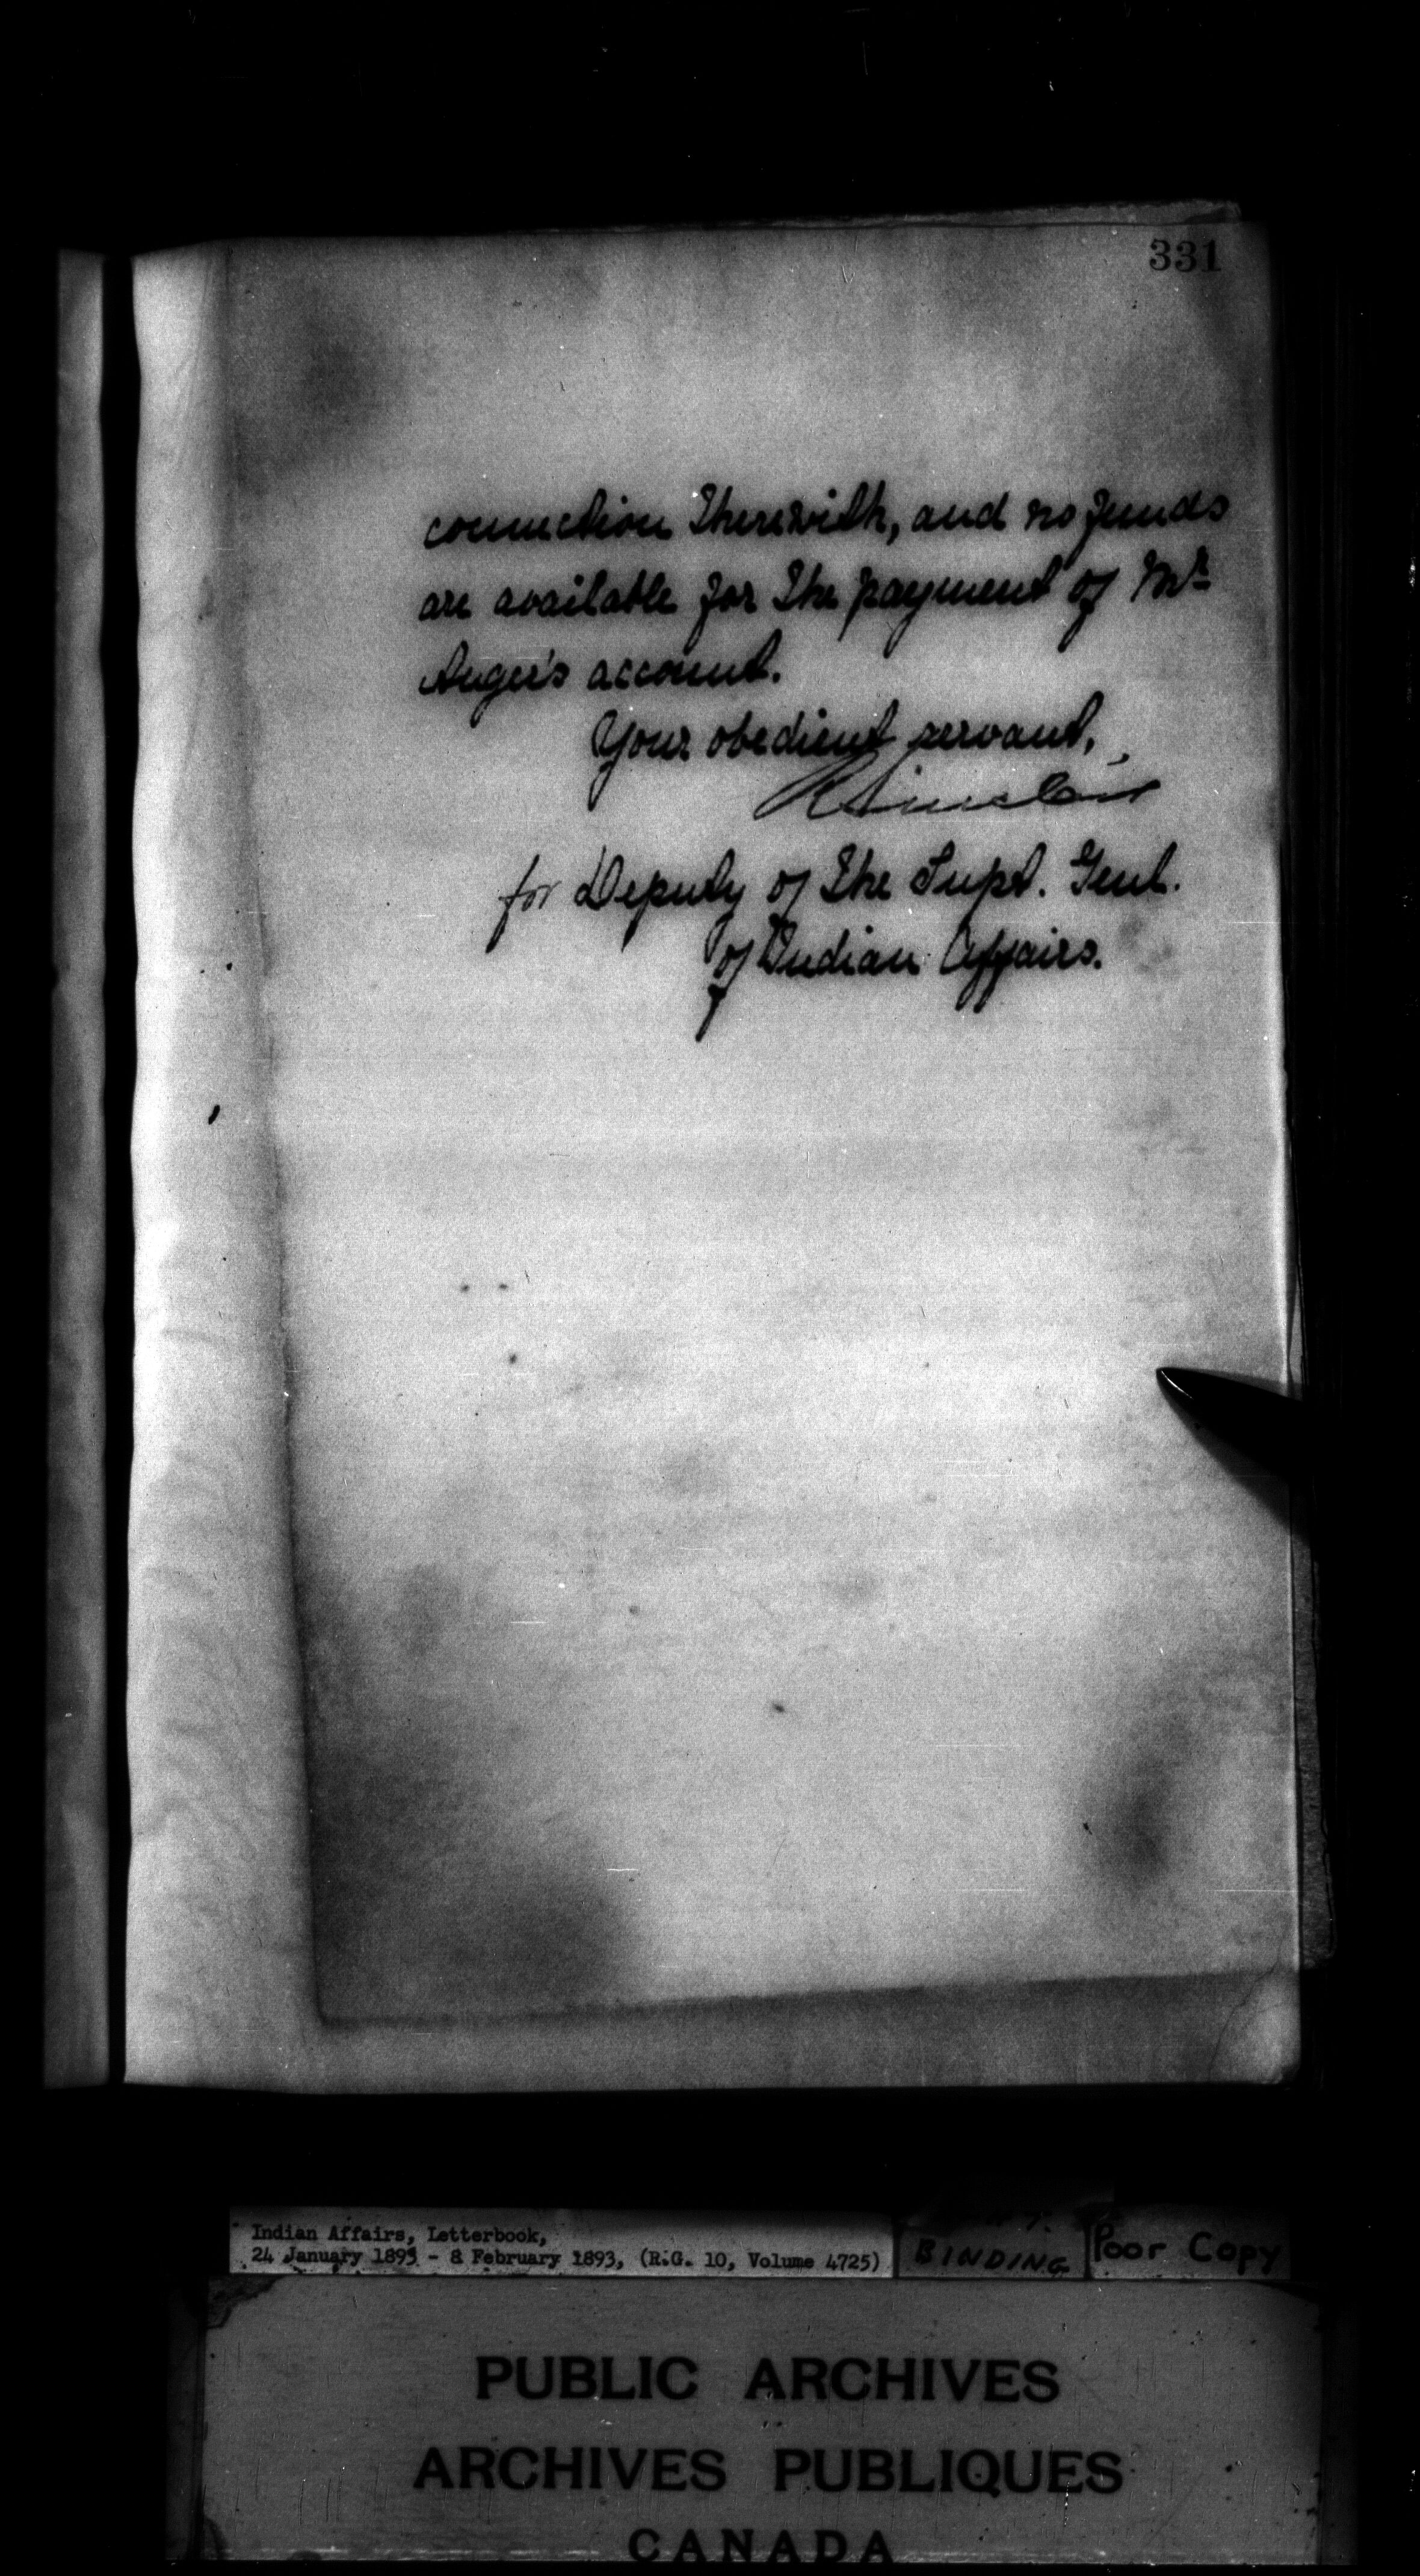 331
connection therewith, and no funds
are available for the payment of Mr
Auger's account.
Your obedient servant,
R Sinclair
for Deputy of the Supt. Genl.
of Indian Affairs.
Indian Affairs, Letterbook,
24 January 1893 - 8 February 1893, (R.G. 10, Volume 4725)
BINDING
Poor Copy
PUBLIC ARCHIVES
ARCHIVES PUBLIQUES
CANADA